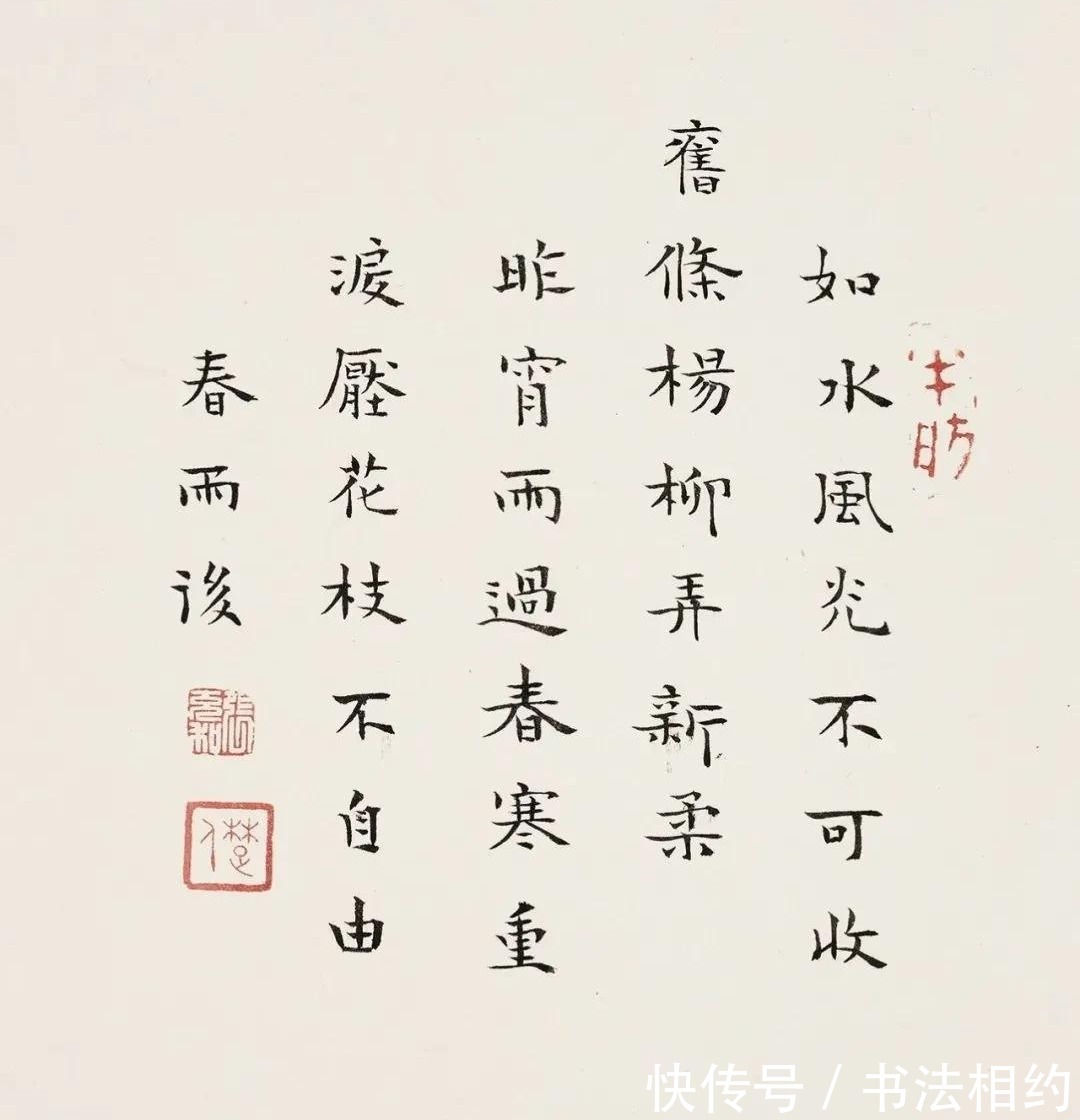 如水風光不可收
舊條楊柳弄新柔
昨宵雨過春寒重
淚壓花枝不自由
春雨後
快传号 / 书法相约